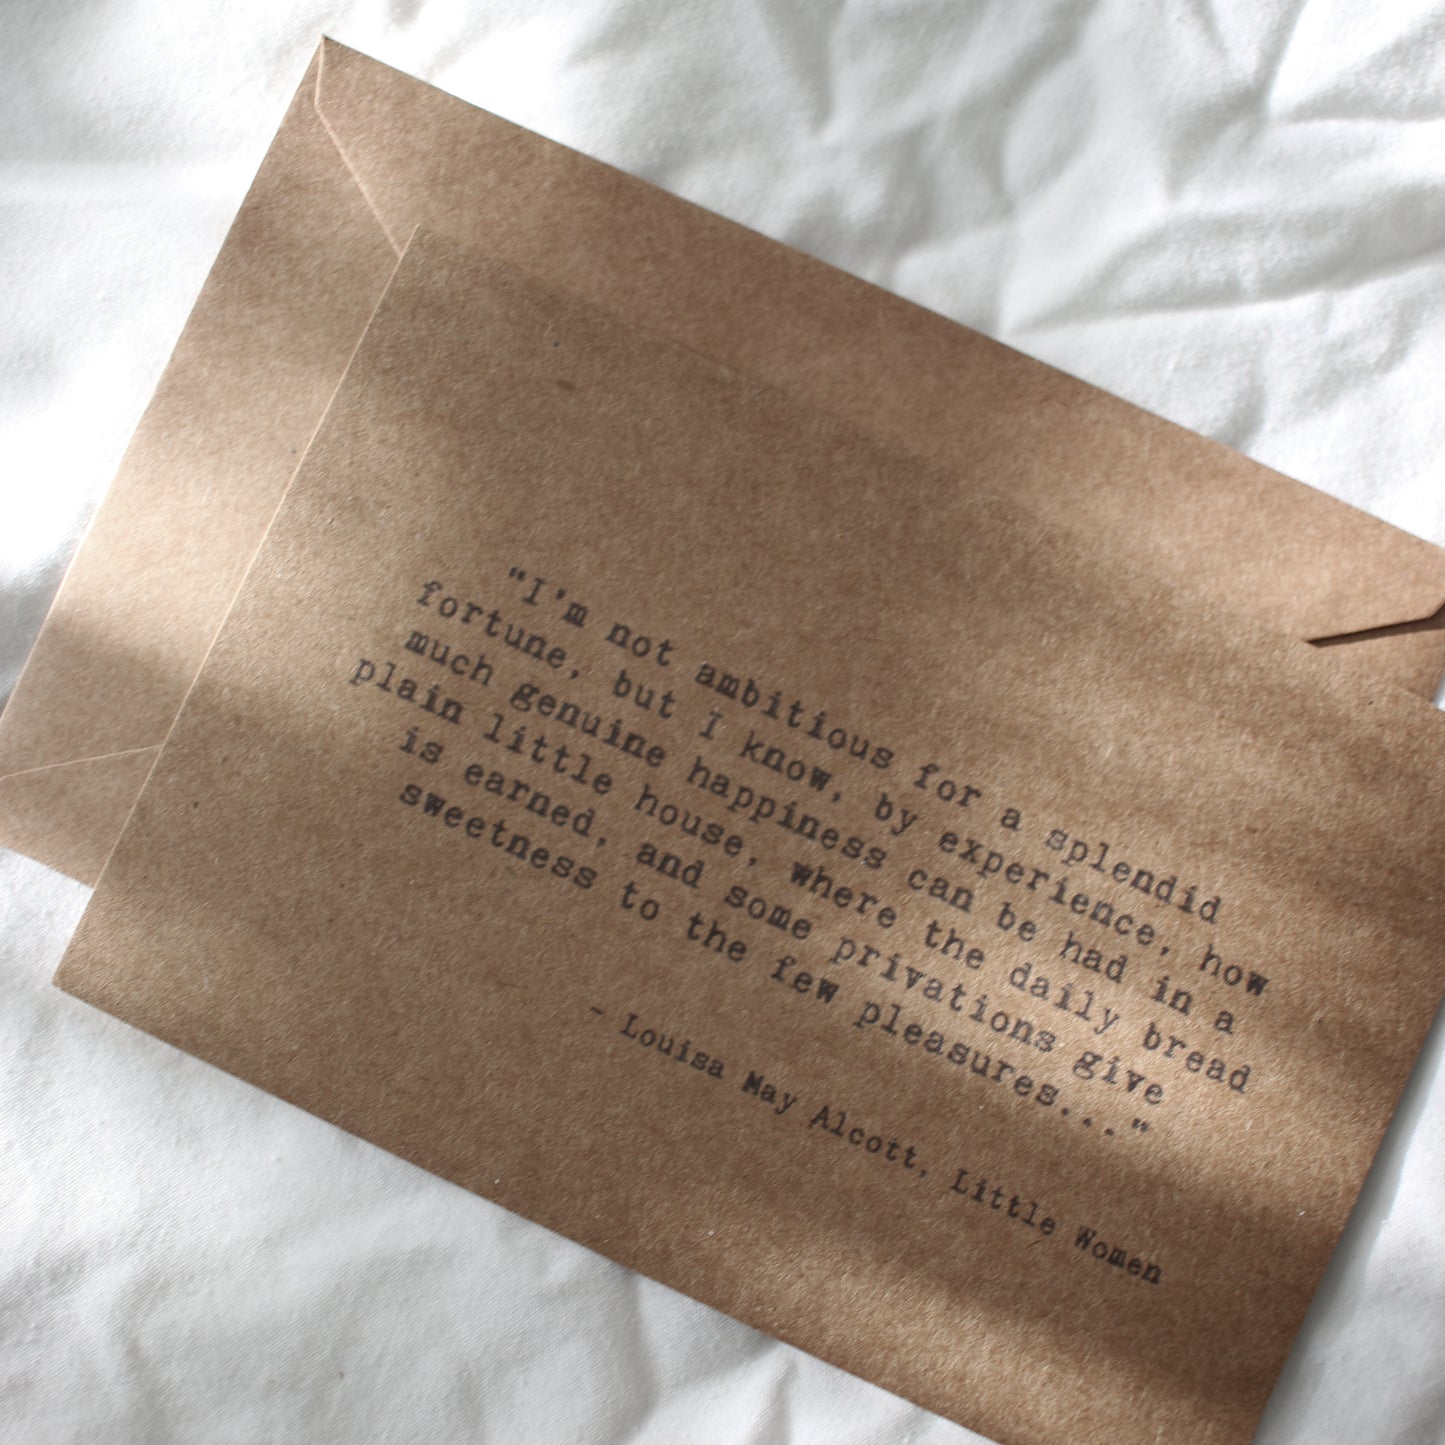 "I'm not ambitious for a splendid
fortune, but I know, by experience, how
much genuine happiness can be had in a
plain little house, where the daily bread
is earned, and some privations give
sweetness to the few pleasures..."
- Louisa May Alcott, Little Women